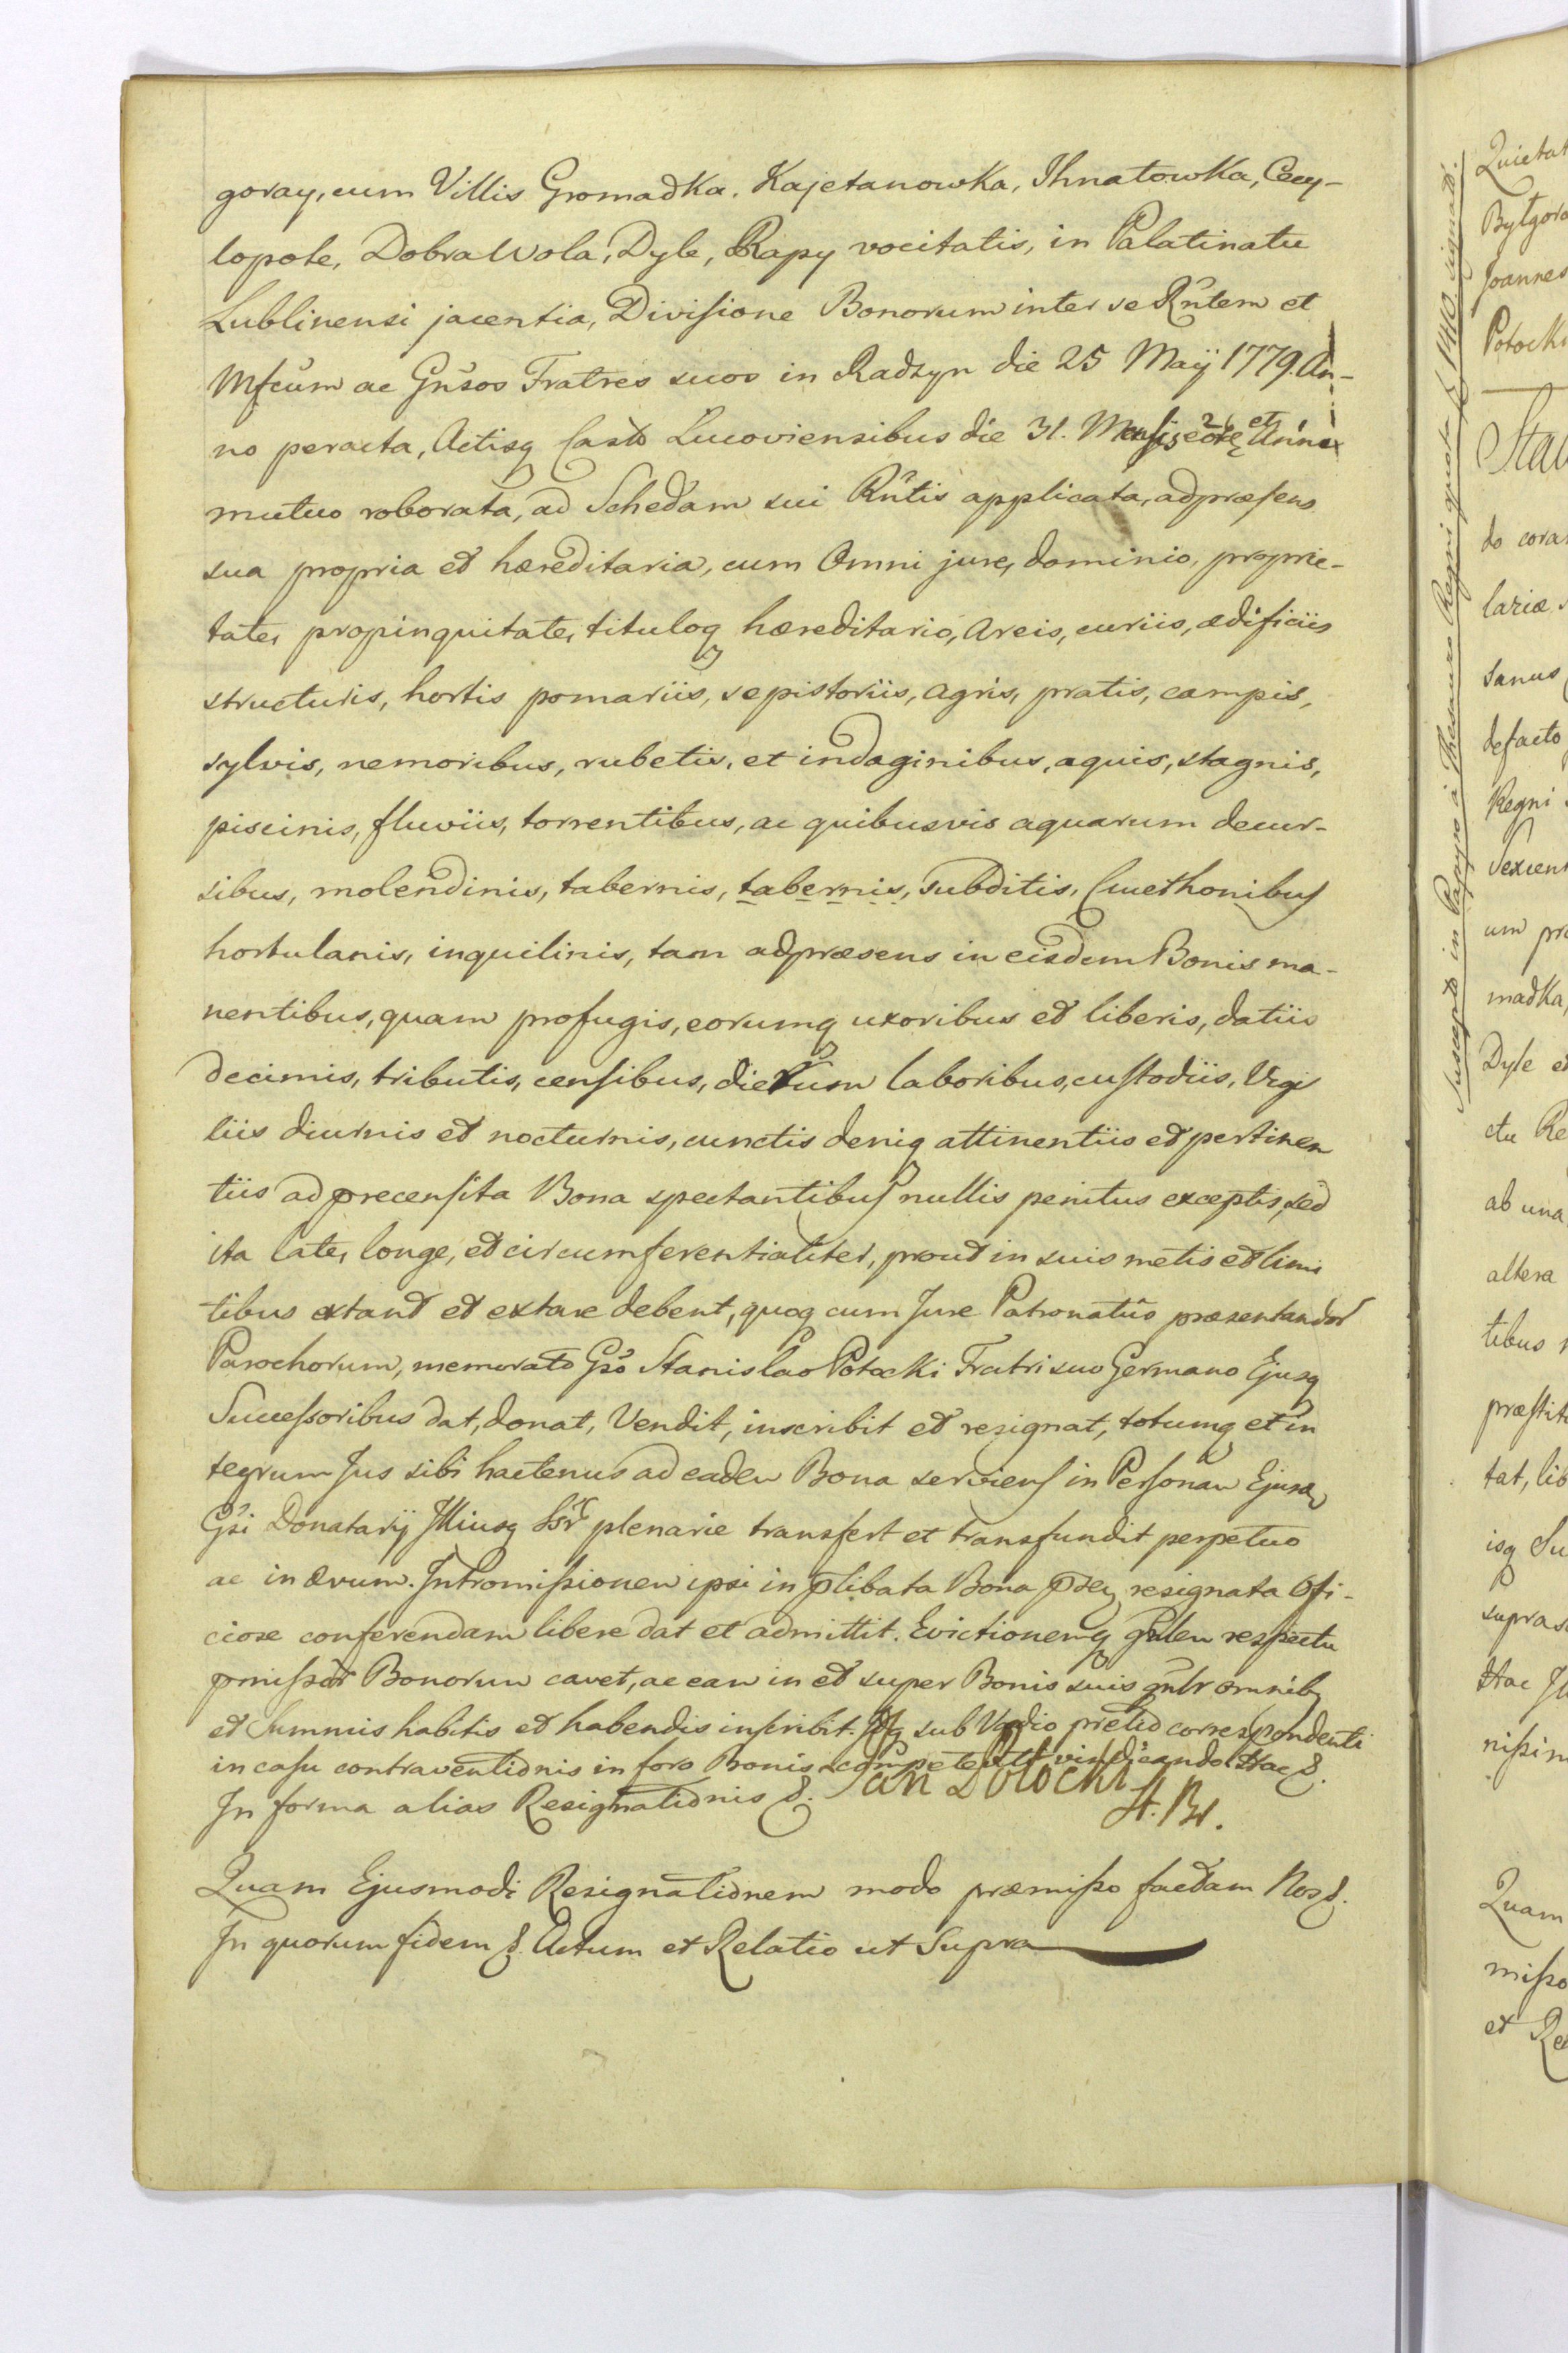 goray, cum Villis Gromadka, Kajetanowka, Ihnatowka, Cecy-
lopole, Dobra Wola, Dyle, Rapy vocitatis, in Palatinatu
Lublinensi jacentia, Divisione Bonorum inter se Rñtem et
Mfcum ac Gñsos Fratres suos in Radzyn die 25 Maij 1779. An-
no peracta, Actisq Castr Lucoviensibus die 31. Mensis et Anni
mutuo roborata, ad Schedam sui Rñtis applicata, adpræsens
sua propria et hæreditaria, cum Omni jure, dominio, proprie-
tate, propinquitate, tituloq hæreditario, Areis, curiis, ædificiis
structuris, hortis pomariis, sepistoriis, agris, pratis, campis,
sylvis, nemoribus, rubetis, et indaginibus, aquis, stagnis,
piscinis, fluviis, torrentibus, ac quibusvis aquarum decur-
sibus, molendinis, tabernis, tabernis, subditis, Cmethonibus
hortulanis, inquilinis, tam adpræsens in eisdem Bonis ma-
nentibus, quam profugis, eorumq uxoribus et liberis, datiis
decimis, tributis, censibus, dierum laboribus, custodiis, Vigi
liis diurnis et nocturnis, cunctis deniq attinentiis et pertinen
tiis ad precensita Bona spectantibus nullis penitus exceptis, sed
ita late, longe, et circumferentialiter, prout in suis metis et limi
tibus extant et extare debent, quoq cum Jure Patronatus præsentandor
Parochorum, memorato Gso Stanislao Potocki Fratri suo Germano Ejusq
Successoribus dat, donat, Vendit, inscribit et resignat, totumq et in
tegrum Jus sibi hactenus ad eadem Bona serviens in Personam Ejusd
Gsi Donatarij Illiusq Ssr plenarie transfert et transfundit perpetuo
ac in ævum. Intromissionem ipsi in plibata Bona resignata Offi-
ciose conferendam libere dat et admittit. Evictionemq gñlem respectu
pmissor Bonorum cavet, ac eam in et super Bonis suis gñlr omnibq
et Summis habitis et habendis inscribit. Idq sub Vadio pretio correspondenti
in casu contraventionis in foro Bonis competenti vindicando Hac &.
In forma alias Resignationis &. Jan Potocki
St. Br.
Quam Ejusmodi Resignationem modo præmisso factam Nos &.
In quorum fidem &. Actum et Relatio ut Supra
Susceptò in Papyro à Thesauro Regni quota f 1410 signatò.
Quietat
Bylgora
Joannes
Potocki
do coram
lariæ
sanus
defacto
Regni
Sexcent
um pro
madka,
Dyle et
ctu Re
ab una
altera
tibus
præstit
tat, lib
isq Su
supras
Hac Ju
nissim
Quam
misso
et Re